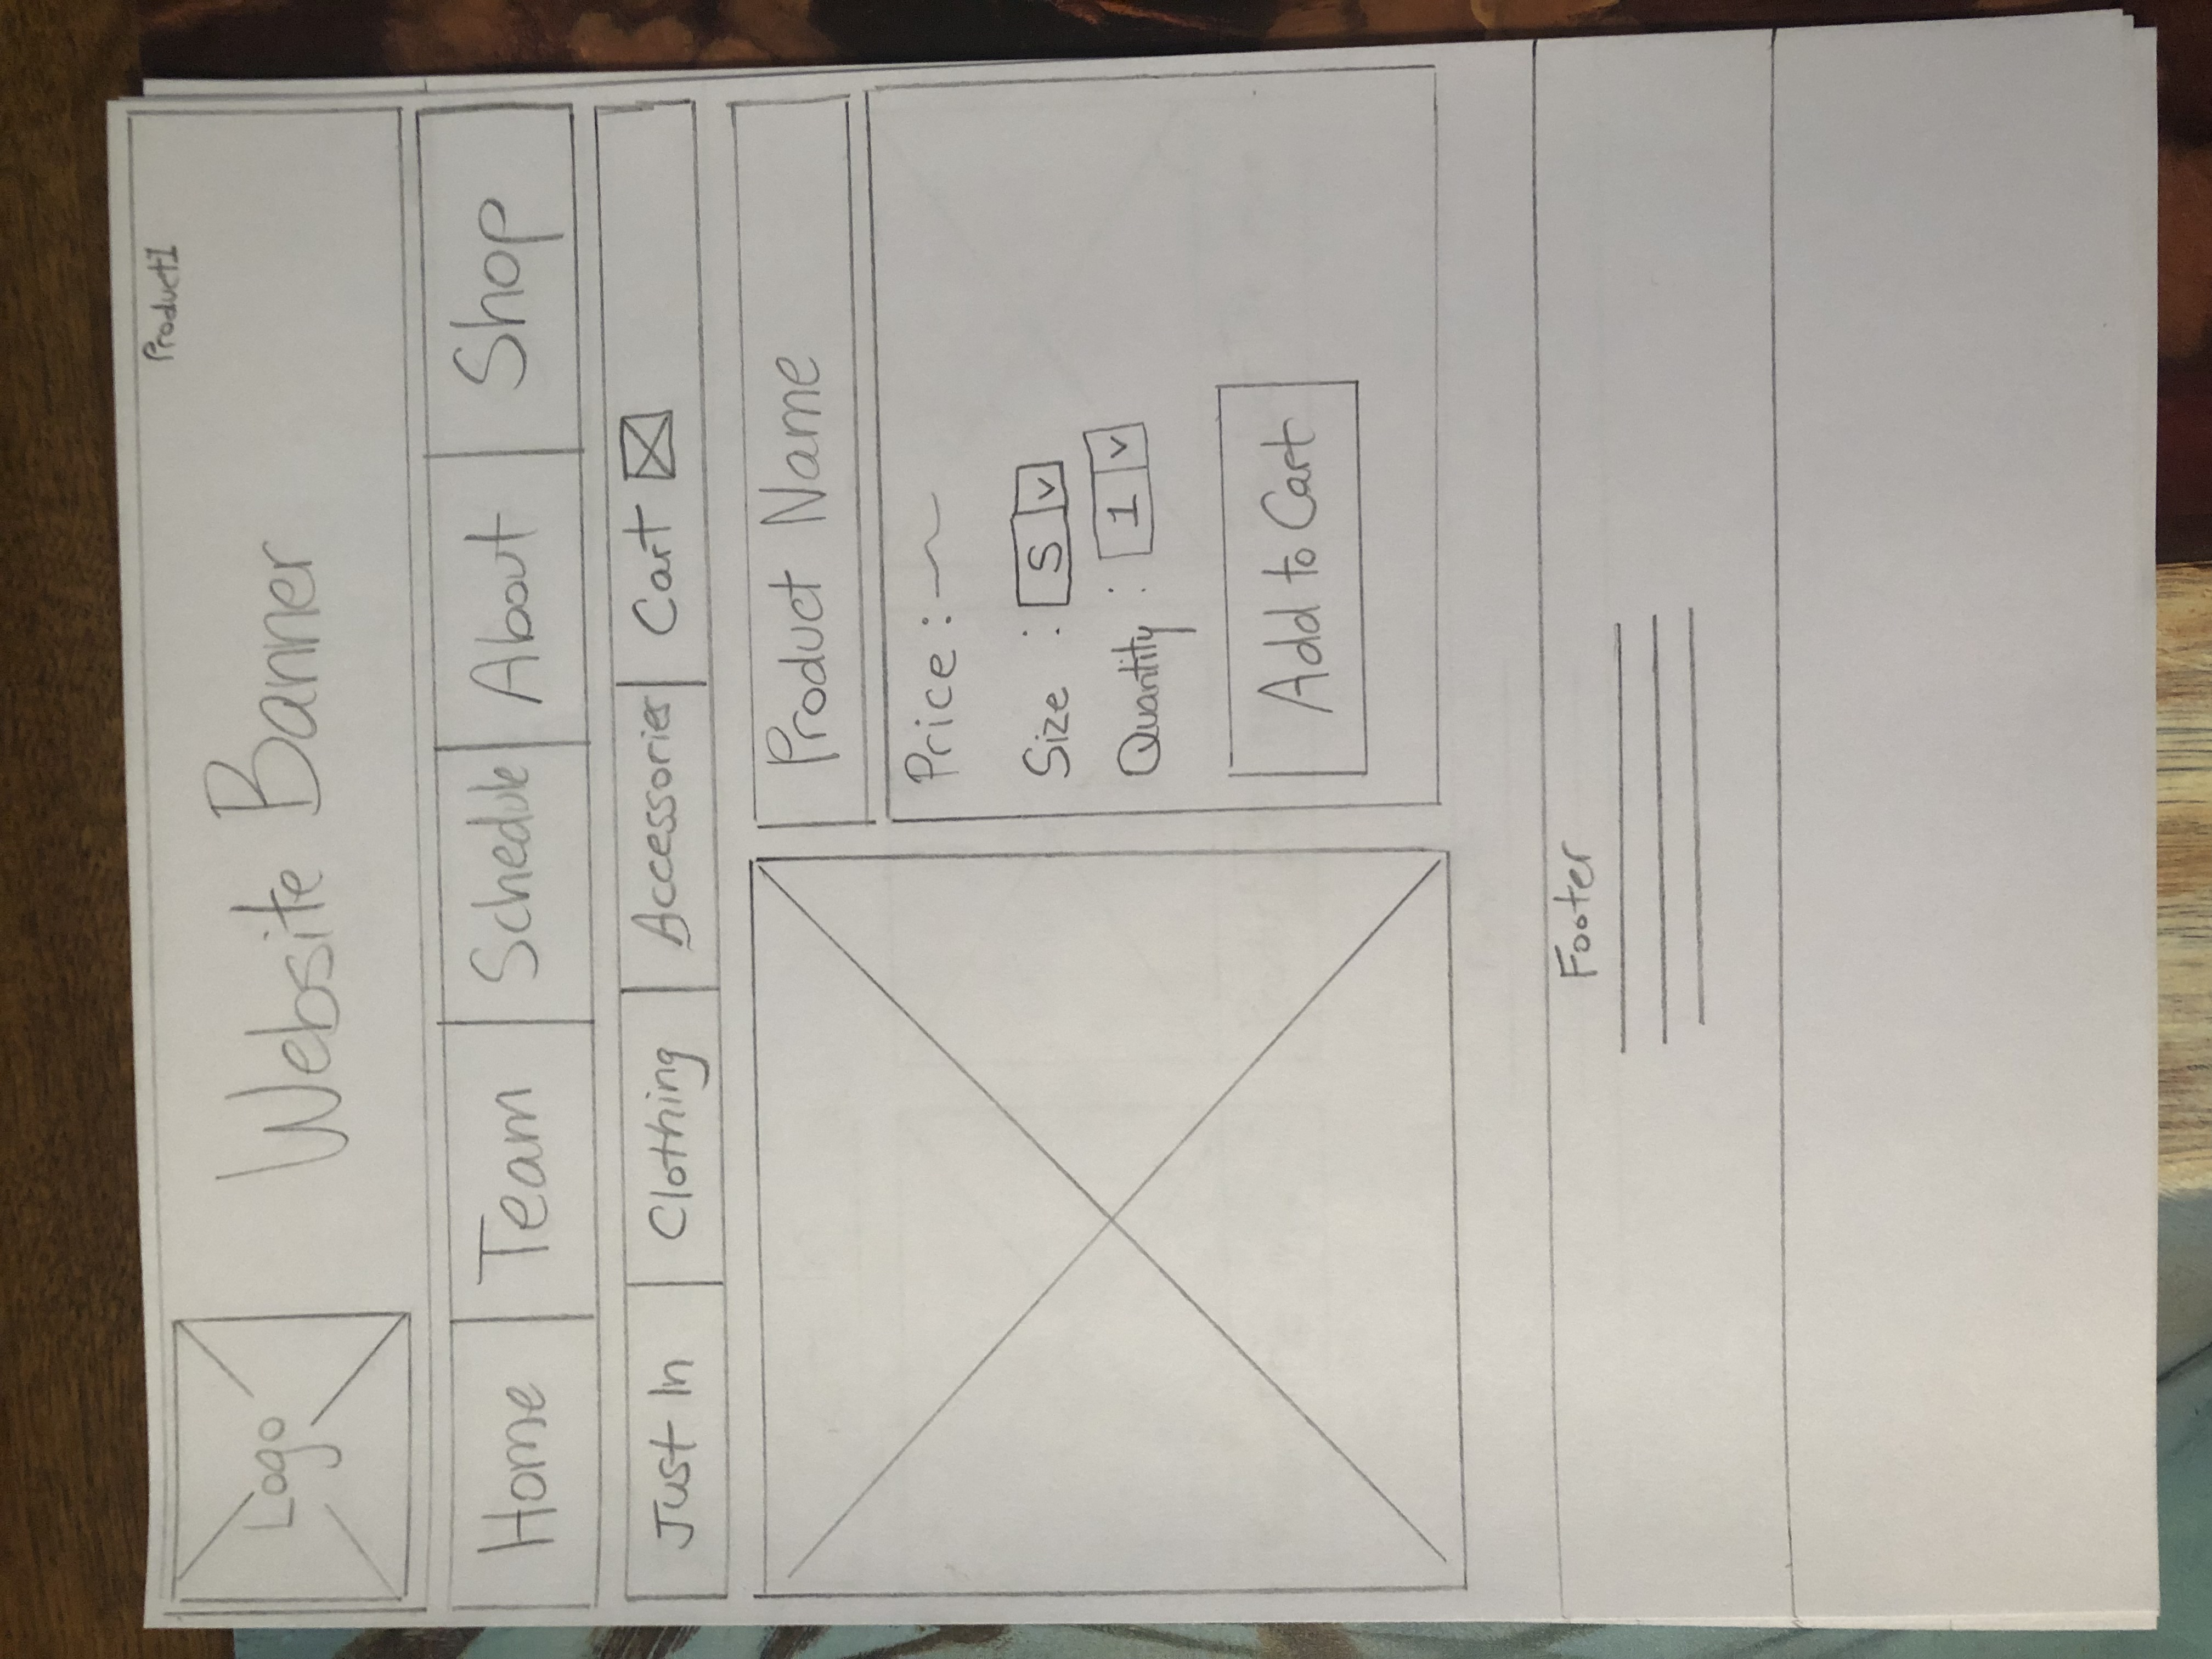 Product1
Logo
Website Banner
Home Team Schedule About Shop
Just In Clothing Accessories Cart
Product Name
Price :
Size : S v
Quantity : 1 v
Add to Cart
Footer